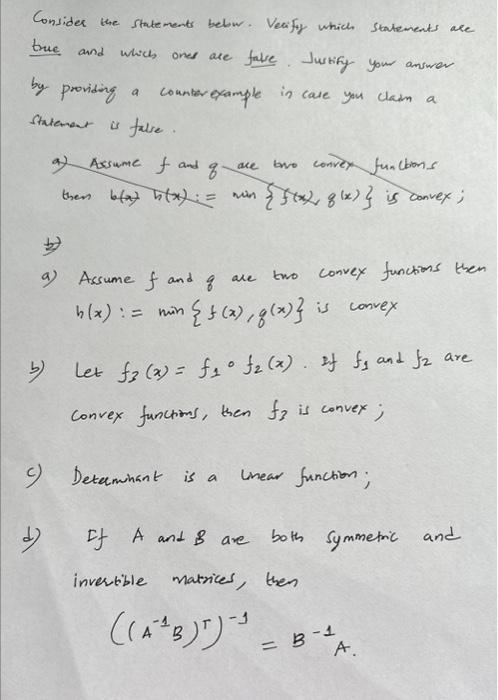 Consider the statements below. Verify which statements are
true and which ones are false. Justify your answer
by providing a counterexample in case you claim a
statement is false.
a) Assume f and g are two convex functions
then h(x) h(x) := min { f(x), g(x) } is convex;
b)
a) Assume f and g are two convex functions then
h(x) := min { f(x), g(x) } is convex
b) Let f₃(x) = f₁ ∘ f₂(x). If f₁ and f₂ are
convex functions, then f₃ is convex;
c) Determinant is a linear function;
d) If A and B are both symmetric and
invertible matrices, then
((A⁻¹B)ᵀ)⁻¹ = B⁻¹A.